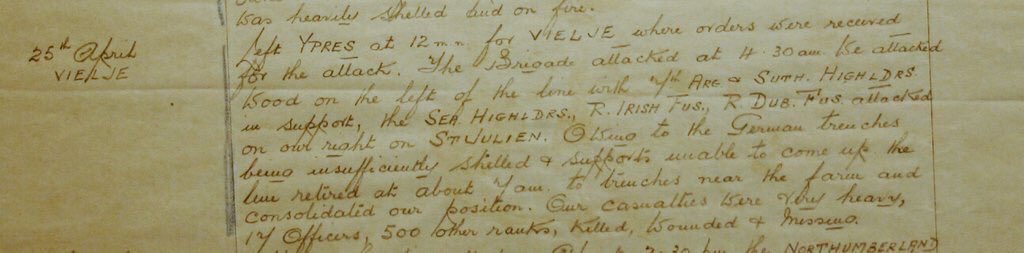 was heavily shelled and on fire.
25th April
VIELJE
left YPRES at 12 m.n. for VIELJE where orders were received
for the attack. The Brigade attacked at 4.30 am. We attacked
Wood on the left of the line with 7th ARG & SUTH. HIGHLDRS.
in support, the SEA. HIGHLDRS., R. IRISH FUS., R. DUB. FUS. attacked
on our right on ST JULIEN. Owing to the German trenches
being insufficiently shelled & supports unable to come up the
line retired at about 7 am. to trenches near the farm and
consolidated our position. Our casualties were very heavy,
17 Officers, 500 other ranks, killed, wounded & missing.
7-30 pm the NORTHUMBERLAND